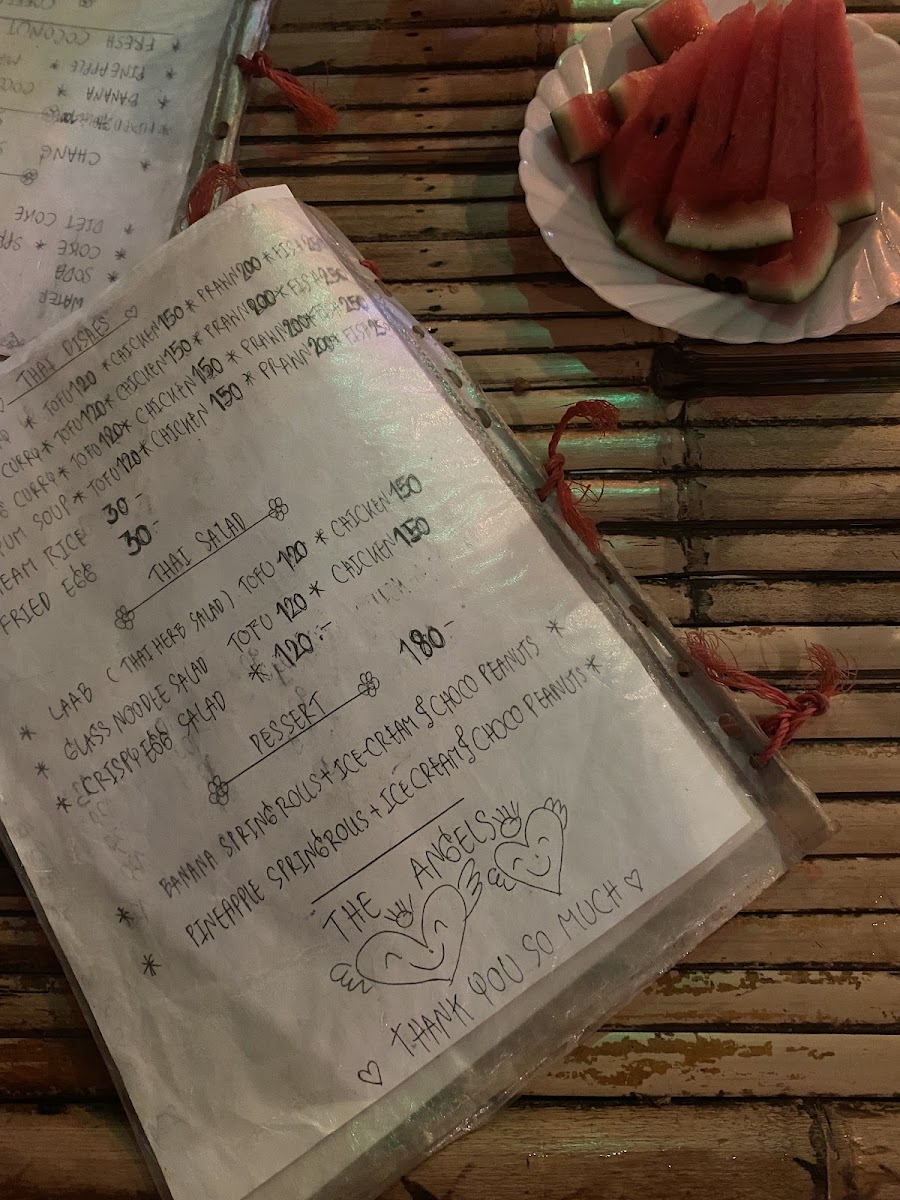 FRESH COCONUT
* PINEAPPLE *
* BANANA *
* CHANG
* DIET COKE
* COKE *
* SODA
WATER
THAI DISHES ♡
* TOFU 120 * CHICKEN 150 * PRAWN 200 * FISH 250
CURRY * TOFU 120 * CHICKEN 150 * PRAWN 200 * FISH 250
CURRY * TOFU 120 * CHICKEN 150 * PRAWN 200 * FISH 250
YUM SOUP * TOFU 120 * CHICKEN 150 * PRAWN 200 * FISH 250
STEAM RICE 30.-
FRIED EGG 30.-
THAI SALAD
* LAAB (THAI HERB SALAD) TOFU 120 * CHICKEN 150
* GLASS NOODLE SALAD TOFU 120 * CHICKEN 150
* CRISPY EGG SALAD * 120.-
DESSERT 180.-
* BANANA SPRINGROLLS + ICE-CREAM & CHOCO PEANUTS *
* PINEAPPLE SPRINGROLLS + ICE CREAM & CHOCO PEANUTS *
THE ANGELS
♡ THANK YOU SO MUCH ♡